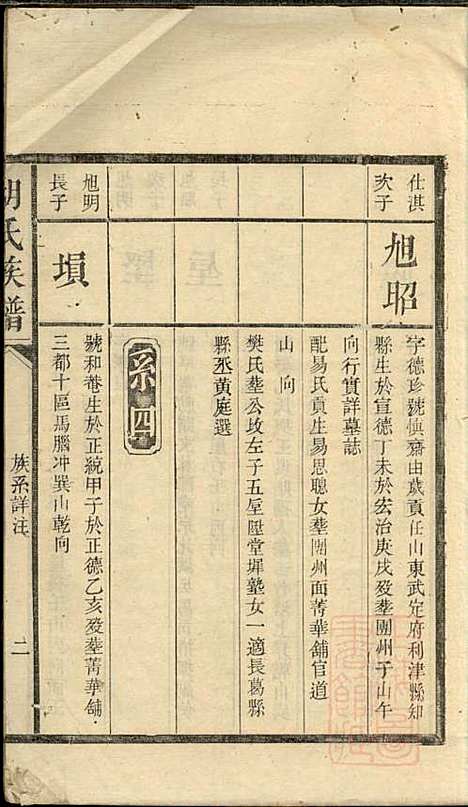 仕淇
次子
旭昭
字德珍號慎齋由歲貢任山東武定府利津縣知
縣生於宣德丁未於宏治庚戌歿葬團州子山午
向行實詳墓誌
配易氏貢生易思聰女葬團州面菁華舖官道
山向
樊氏葬公坟左子五垕陞堂墀塾女一適長葛縣
縣丞黄庭選
系四
旭明
長子
塤
號和菴生於正統甲子於正德乙亥歿葬菁華舖
三都十區馬腦冲巽山乾向
胡氏族譜
族系詳注
二